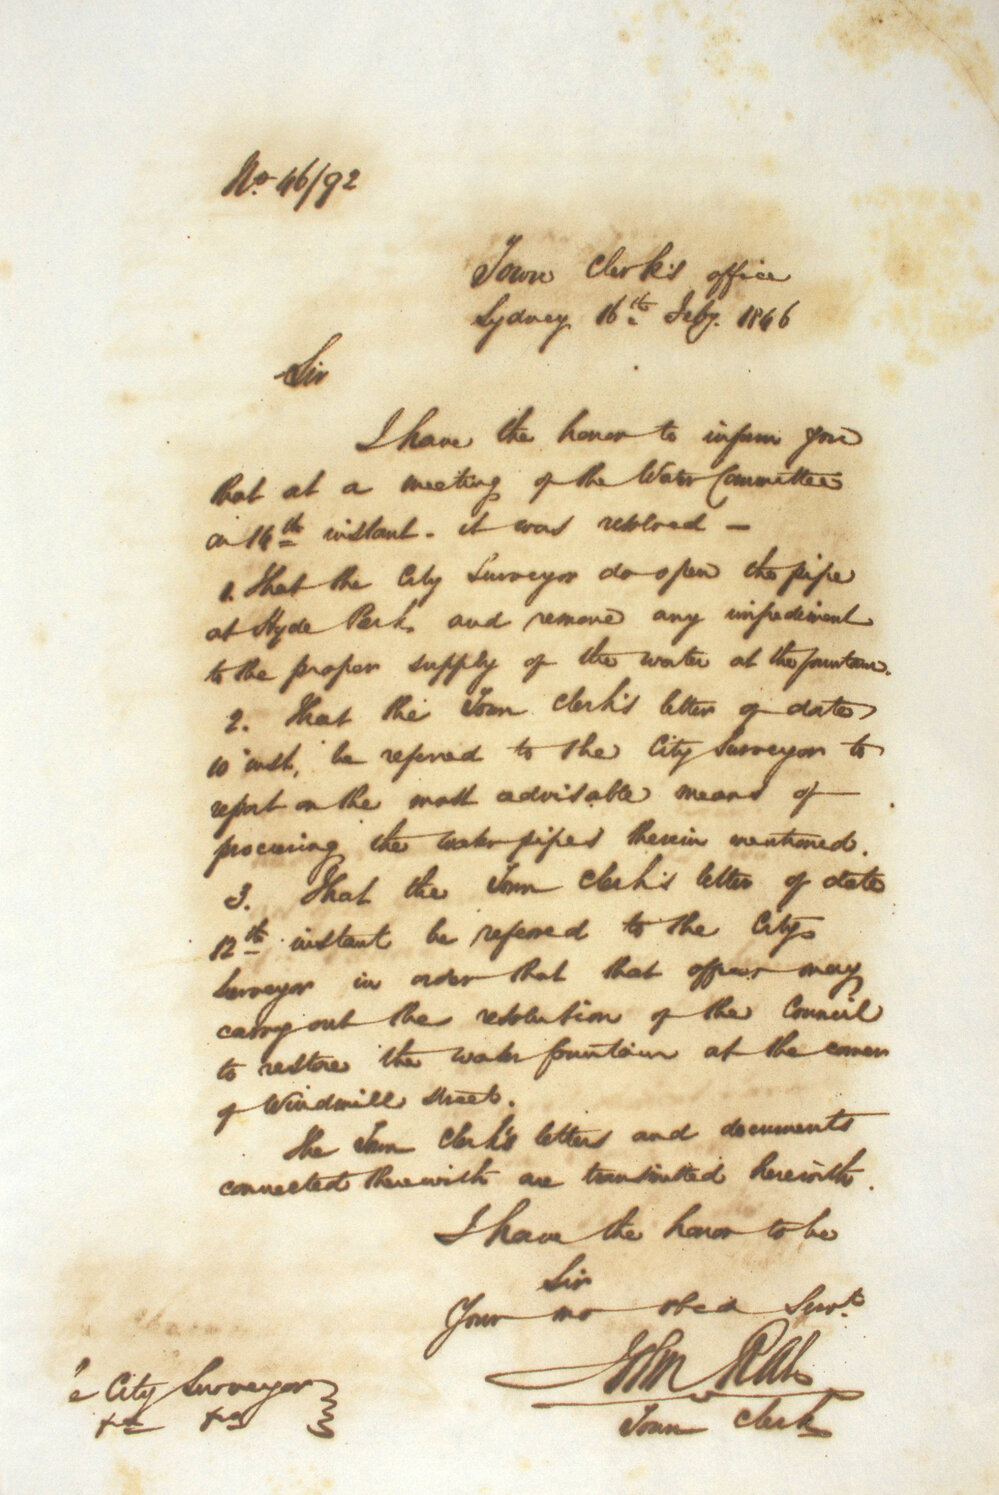 No. 46/92
Town Clerk's office
Sydney 16th Feby. 1846
Sir
I have the honor to inform you
that at a meeting of the Water Committee
on 14th instant - it was resolved -
1. That the City Surveyor do open the pipe
at Hyde Park and remove any impediment
to the proper supply of the water at the fountain.
2. That the Town Clerk's letter of date
10 inst, be referred to the City Surveyor to
report on the most advisable means of
procuring the water pipes therein mentioned.
3. That the Town Clerk's letter of date
12th instant be referred to the City
Surveyor in order that that officer may
carry out the resolution of the Council
to restore the water fountain at the corner
of Windmill Street.
The Town Clerk's letters and documents
connected therewith are transmitted herewith.
I have the honor to be
Sir
Your mo obed Servt.
John
Town Clerk
City Surveyor